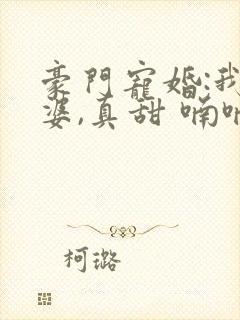 豪門寵婚:我
婆,真甜 喃
柯璐